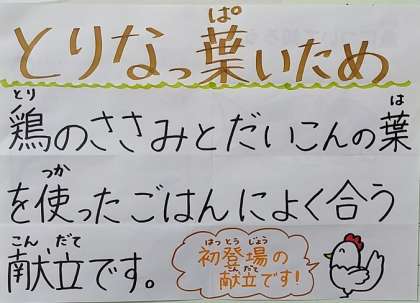 とりなっ葉いため
鶏のささみとだいこんの葉
を使ったごはんによく合う
献立です。
初登場の
献立です!